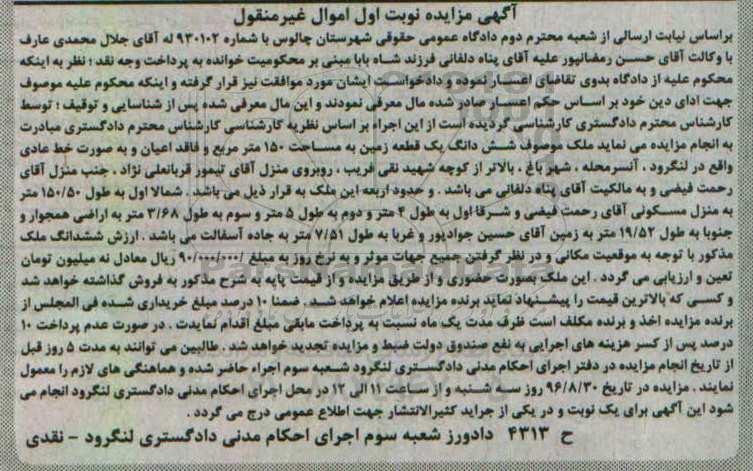 آگهی مزایده نوبت اول اموال غیرمنقول
براساس نیابت ارسالی از شعبه محترم دوم دادگاه عمومی حقوقی شهرستان چالوس با شماره ۹۳۰۱۰۲ له آقای جلال محمدی عارف
با وکالت آقای حسن رمضانپور علیه آقای پناه دلفانی فرزند شاه بابا مبنی بر محکومیت خوانده به پرداخت وجه نقد ؛ نظر به اینکه
محکوم علیه از دادگاه بدوی تقاضای اعسار نموده و دادخواست ایشان مورد موافقت نیز قرار گرفته و اینکه محکوم علیه موصوف
جهت ادای دین خود بر اساس حکم اعسار صادر شده مال معرفی نمودند و این مال معرفی شده پس از شناسایی و توقیف ؛ توسط
کارشناس محترم دادگستری کارشناسی گردیده است از این اجراء بر اساس نظریه کارشناسی کارشناس محترم دادگستری مبادرت
به انجام مزایده می نماید ملک موصوف شش دانگ یک قطعه زمین به مساحت ۱۵۰ متر مربع و فاقد اعیان و به صورت خط عادی
واقع در لنگرود . آنسرمحله . شهر باغ . بالاتر از کوچه شهید نقی فریب . روبروی منزل آقای تیمور قربانعلی نژاد . جنب منزل آقای
رحمت فیضی و به مالکیت آقای پناه دلفانی می باشد . و حدود اربعه این ملک به قرار ذیل می باشد . شمالا اول به طول ۱۵۰/۵۰ متر
به منزل مسکونی آقای رحمت فیضی و شرقا اول به طول ۴ متر و دوم به طول ۵ متر و سوم به طول ۳/۶۸ متر به اراضی همجوار و
جنوبا به طول ۱۹/۵۲ متر به زمین آقای حسین جوادپور و غربا به طول ۷/۵۱ متر به جاده آسفالت می باشد . ارزش ششدانگ ملک
مذکور با توجه به موقعیت مکانی و در نظر گرفتن جمیع جهات موثر و به نرخ روز به مبلغ ۹۰/۰۰۰/۰۰۰/ ریال معادل نه میلیون تومان
تعین و ارزیابی می گردد . این ملک بصورت حضوری و از طریق مزایده و از قیمت پایه به شرح مذکور به فروش گذاشته خواهد شد
و کسی که بالاترین قیمت را پیشنهاد نماید برنده مزایده اعلام خواهد شد . ضمنا ۱۰ درصد مبلغ خریداری شده فی المجلس از
برنده مزایده اخذ و برنده مکلف است ظرف مدت یک ماه نسبت به پرداخت مابقی مبلغ اقدام نمایدت . در صورت عدم پرداخت ۱۰
درصد پس از کسر هزینه های اجرایی به نفع صندوق دولت ضبط و مزایده تجدید خواهد شد . طالبین می توانند به مدت ۵ روز قبل
از تاریخ انجام مزایده در دفتر اجرای احکام مدنی دادگستری لنگرود شعبه سوم اجراء حاضر شده و هماهنگی های لازم را معمول
نمایند . مزایده در تاریخ ۹۶/۸/۳۰ روز سه شنبه و از ساعت ۱۱ الی ۱۲ در محل اجرای احکام مدنی دادگستری لنگرود انجام می
شود این آگهی برای یک نوبت و در یکی از جراید کثیرالانتشار جهت اطلاع عمومی درج می گردد .
ح ۴۳۱۳ دادورز شعبه سوم اجرای احکام مدنی دادگستری لنگرود - نقدی